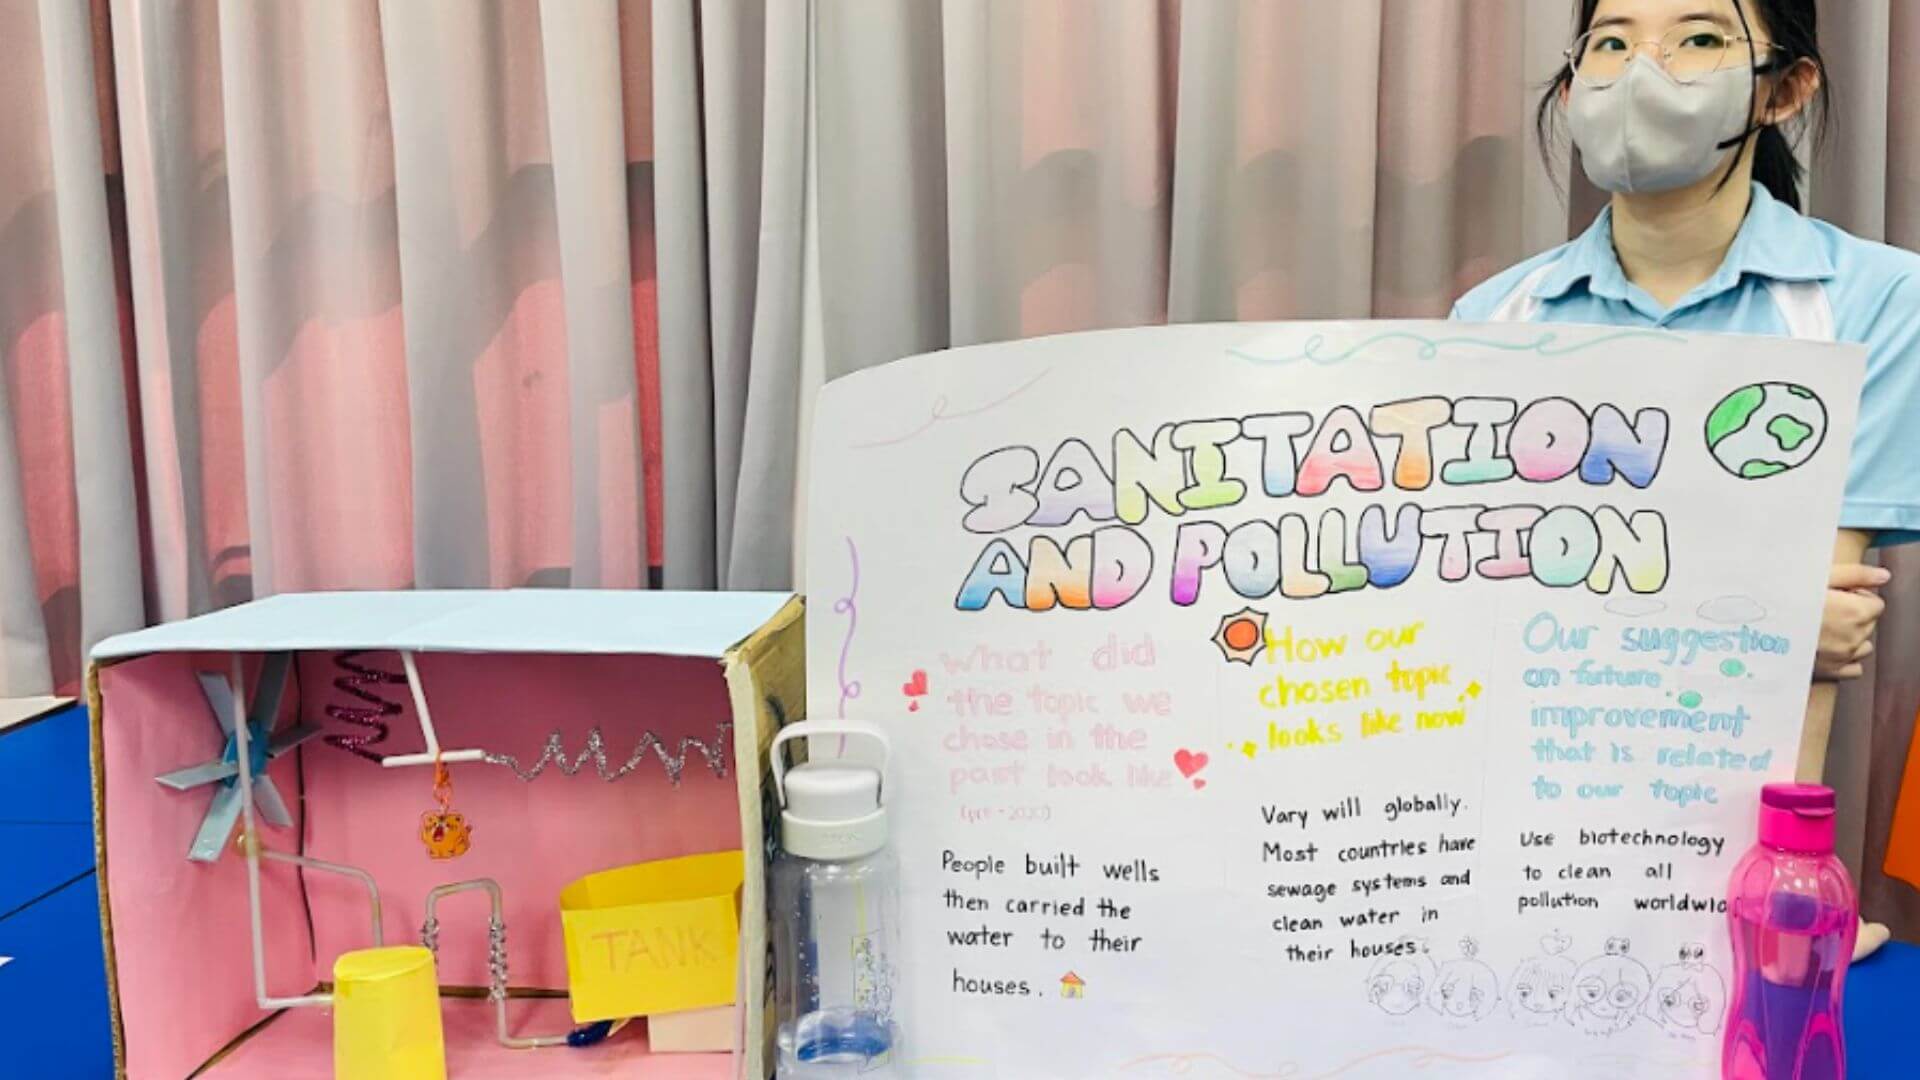 SANITATION
AND POLLUTION
What did
the topic we
chose in the
past look like
(pre-2020)
People built wells
then carried the
water to their
houses.
How our
chosen topic
looks like now
Vary will globally.
Most countries have
sewage systems and
clean water in
their houses.
Our suggestion
on future
improvement
that is related
to our topic
Use biotechnology
to clean all
pollution
TANK